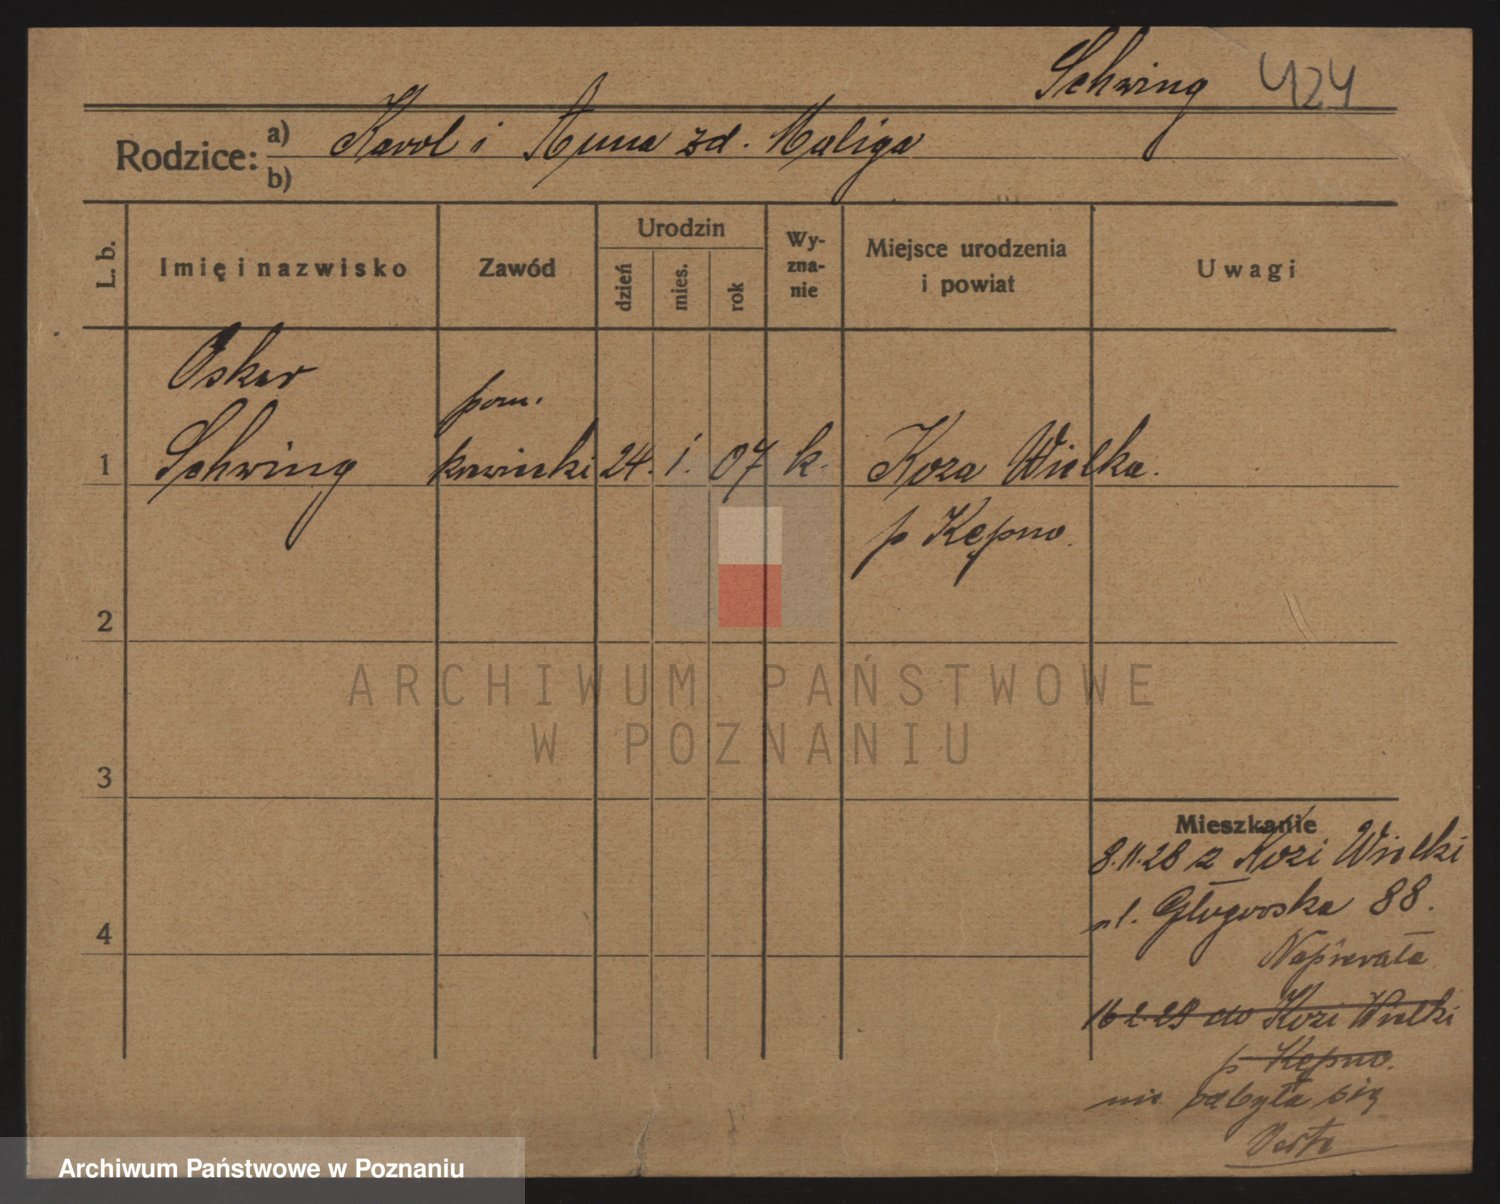 Schwing 424
Rodzice: a) Karol i Anna zd. Maliga
b)
L. b. Imię i nazwisko Zawód Urodzin dzień mies. rok Wy-zna-nie Miejsce urodzenia i powiat Uwagi
Oskar pom.
1 Schwing krawiecki 24. 1. 07 k. Koza Wielka.
p Kępno.
2
3
4
Mieszkanie
8.11.28 z Kozi Wielki
ul. Głogowska 88.
Napierała
16.2.29 do Kozi Wielki
p Kępno.
nie odbyła się
Verte
ARCHIWUM PAŃSTWOWE
W POZNANIU
Archiwum Państwowe w Poznaniu